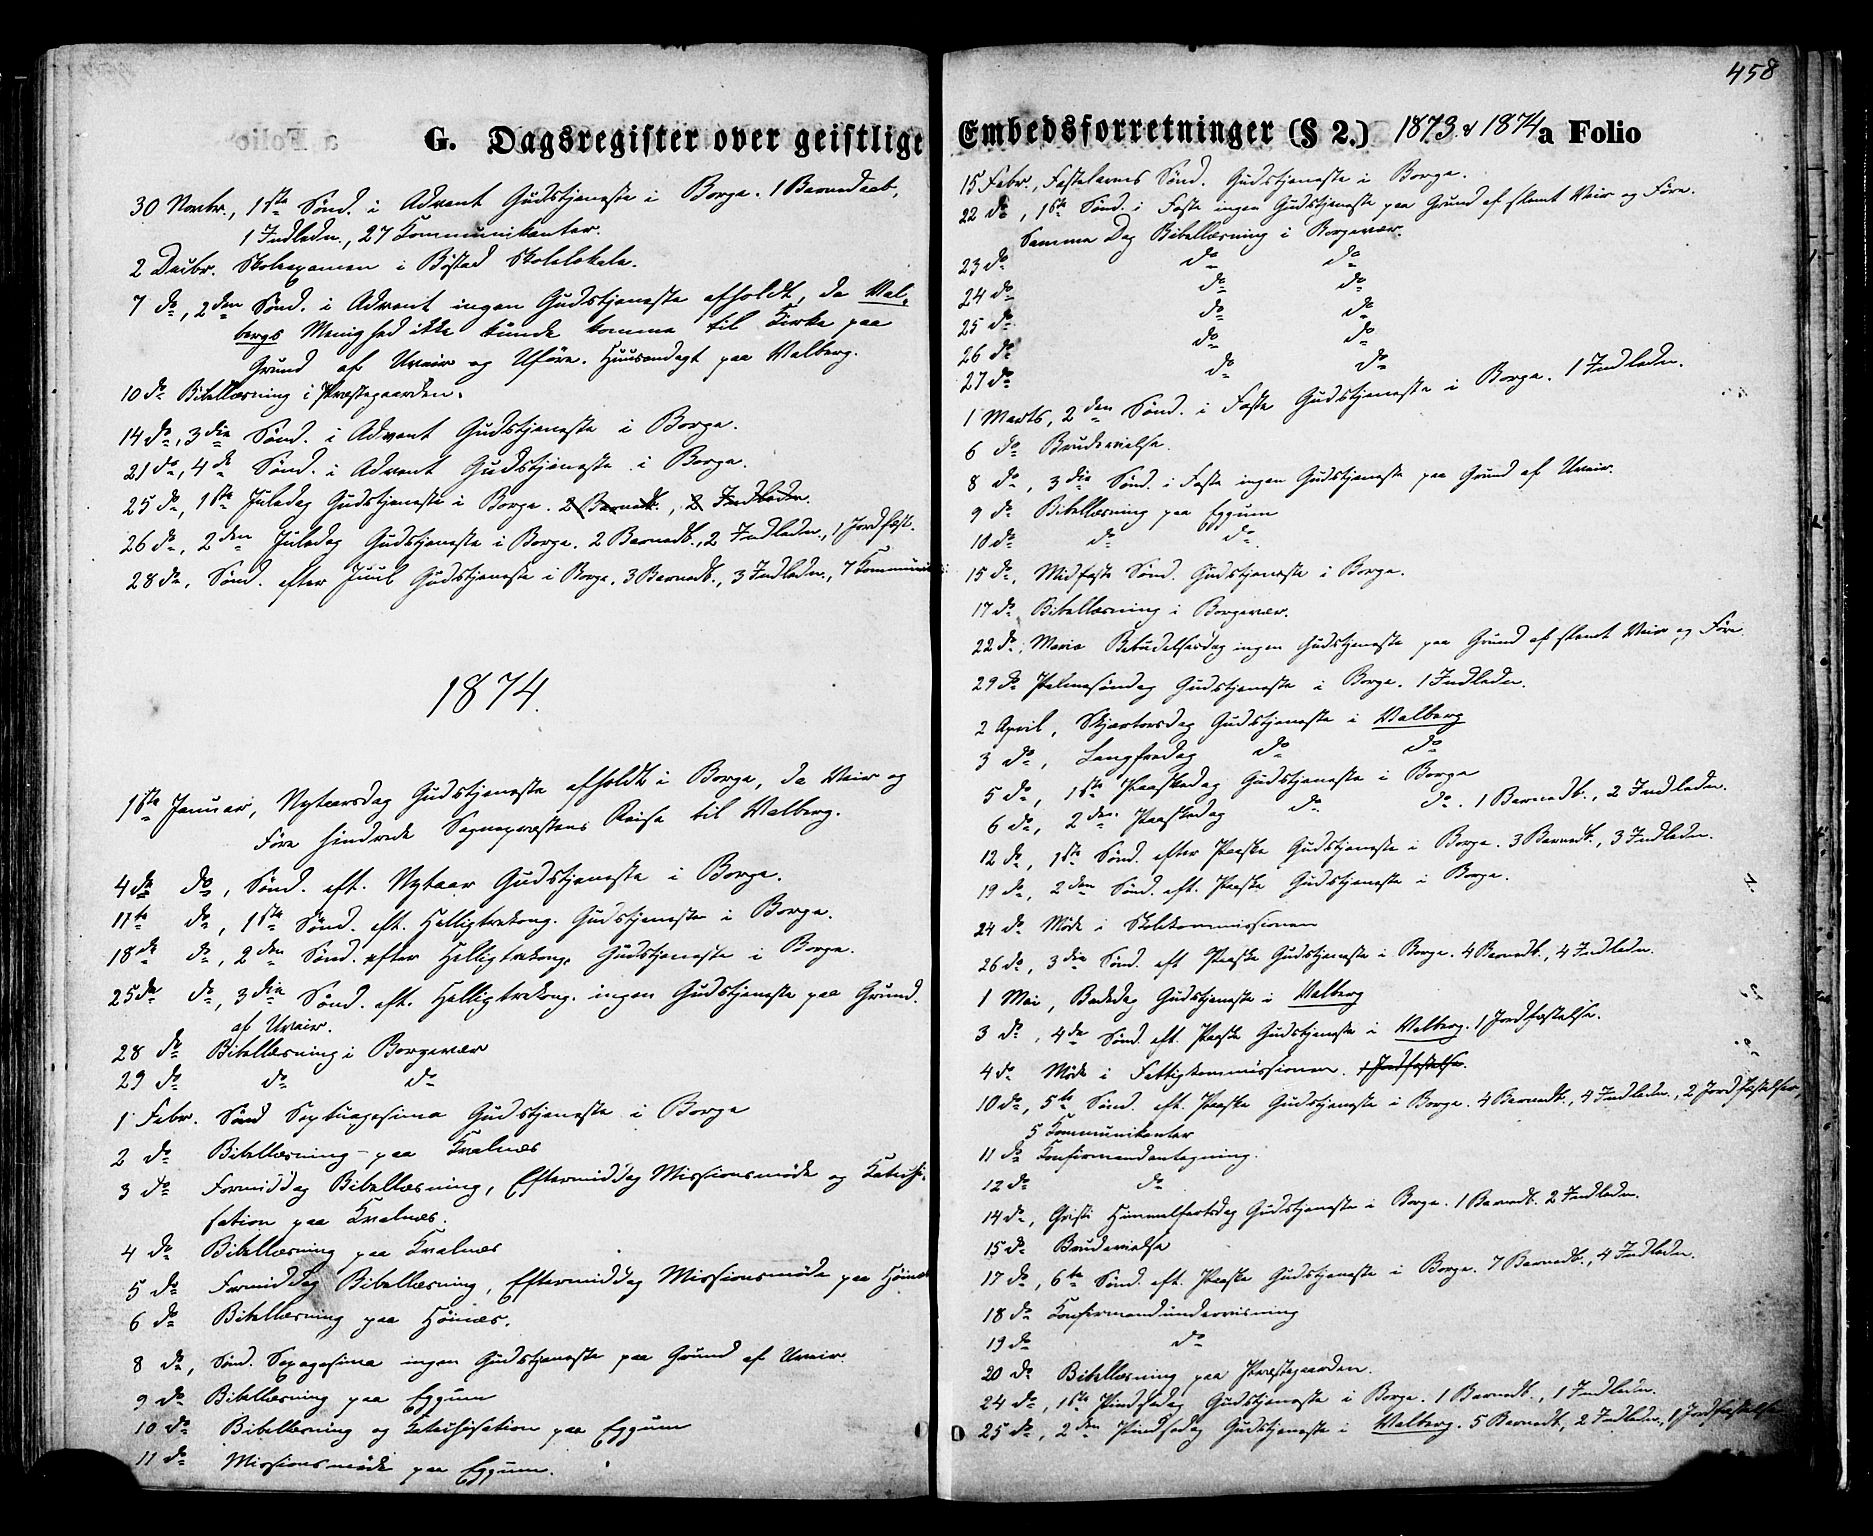 458
G. Dagsregister over geistlige Embedsforretninger (§ 2.) 1873 & 1874 a Folio
30 Novbr., 1ste Sønd. i Advent Gudstjeneste i Borge. 1 Barnedaab,
1 Indledn., 27 Kommunikanter.
2 Decbr. Skoleexamen i Bøstad Skolelokale.
7 do, 2den Sønd. i Advent ingen Gudstjeneste afholdt, da Val-
bergs Menighed ikke kunde komme til Kirke paa
Grund af Uveir og Uføre. Huusandagt paa Valberg.
10 do Bibellæsning i Præstegaarden.
14 do, 3die Sønd. i Advent Gudstjeneste i Borge.
21 do, 4de Sønd. i Advent Gudstjeneste i Borge.
25 do, 1ste Juledag Gudstjeneste i Borge. 2 Barnedb., 2 Indledn.
26 do, 2den Juledag Gudstjeneste i Borge. 2 Barnedb., 2 Indledn., 1 Jordfæst.
28 do, Sønd. efter Juul Gudstjeneste i Borge. 3 Barnedb., 3 Indledn., 7 Kommuni
1874.
1ste Januar, Nytaarsdag Gudstjeneste afholdt i Borge, da Veir og
Føre hindrede Sognepræstens Reise til Valberg.
4de do, Sønd. eft. Nytaar Gudstjeneste i Borge.
11te do, 1ste Sønd. eft. Helligtrekong. Gudstjeneste i Borge.
18de do, 2den Sønd. efter Helligtrekong. Gudstjeneste i Borge.
25de do, 3die Sønd. eft. Helligtrekong. ingen Gudstjeneste paa Grund
af Uveir.
28 do Bibellæsning i Borgevær
29 do do do
1 Febr. Sønd Septuagesima Gudstjeneste i Borge
2 do Bibellæsning paa Kvalnæs
3 do Formiddag Bibellæsning, Eftermiddag Missionsmøde og Katechi-
sation paa Kvalnæs.
4 do Bibellæsning paa Kvalnæs
5 do Formiddag Bibellæsning, Eftermiddag Missionsmøde paa Høinæs
6 do Bibellæsning paa Høinæs.
8 do, Sønd. Sexagesima ingen Gudstjeneste paa Grund af Uveir.
9 do Bibellæsning paa Eggum
10 do Bibellæsning og Katechisation paa Eggum
11 do Missionsmøde paa Eggum.
15 Febr., Fastelavns Sønd. Gudstjeneste i Borge.
22 do, 1ste Sønd. i Faste ingen Gudstjeneste paa Grund af slemt Veir og Føre.
Samme Dag Bibellæsning i Borgevær.
23 do do do
24 do do do
25 do do do
26 do do do
27 do do do
1 Marts, 2den Sønd. i Faste Gudstjeneste i Borge. 1 Indledn.
6 do Brudevielse.
8 do, 3die Sønd. i Faste ingen Gudstjeneste paa Grund af Uveir.
9 do Bibellæsning paa Eggum
10 do do do
15 do, Midfaste Sønd. Gudstjeneste i Borge.
17 do Bibellæsning i Borgevær.
22 do, Maria Bebudelsesdag ingen Gudstjeneste paa Grund af slemt Veir og Føre
29 do Palmesøndag Gudstjeneste i Borge. 1 Indledn.
2 April, Skjærtorsdag Gudstjeneste i Valberg
3 do, Langfredag do do
5 do, 1ste Paaskedag Gudstjeneste i Borge
6 do, 2den Paaskedag do do. 1 Barnedb., 2 Indledn.
12 do, 1ste Sønd. efter Paaske Gudstjeneste i Borge. 3 Barnedb., 3 Indledn.
19 do, 2den Sønd. eft. Paaske Gudstjeneste i Borge.
24 do Møde i Skolekommissionen
26 do, 3die Sønd. eft Paaske Gudstjeneste i Borge. 4 Barnedb., 4 Indledn.
1 Mai, Bededag Gudstjeneste i Valberg
3 do, 4de Sønd. eft. Paaske Gudstjeneste i Valberg. 1 Jordfæstelse.
4 do Møde i Fattigkommissionen. 1 Jordfæstelse.
10 do, 5te Sønd. eft. Paaske Gudstjeneste i Borge. 4 Barnedb., 4 Indledn., 2 Jordfæstelser,
5 Kommunikanter
11 do Konfirmandantagning.
12 do do
14 do, Christi Himmelfartsdag Gudstjeneste i Borge. 1 Barnedb. 2 Indledn.
15 do Brudevielse
17 do, 6te Sønd. eft. Paaske Gudstjeneste i Borge. 7 Barnedb., 4 Indledn.
18 do Konfirmandundervisning
19 do do
20 do Bibellæsning paa Præstegaarden.
24 do, 1ste Pindsedag Gudstjeneste i Borge. 1 Barnedb., 1 Indledn.
25 do, 2den Pindsedag Gudstjeneste i Valberg. 5 Barnedb., 2 Indledn., 1 Jordfæstelse